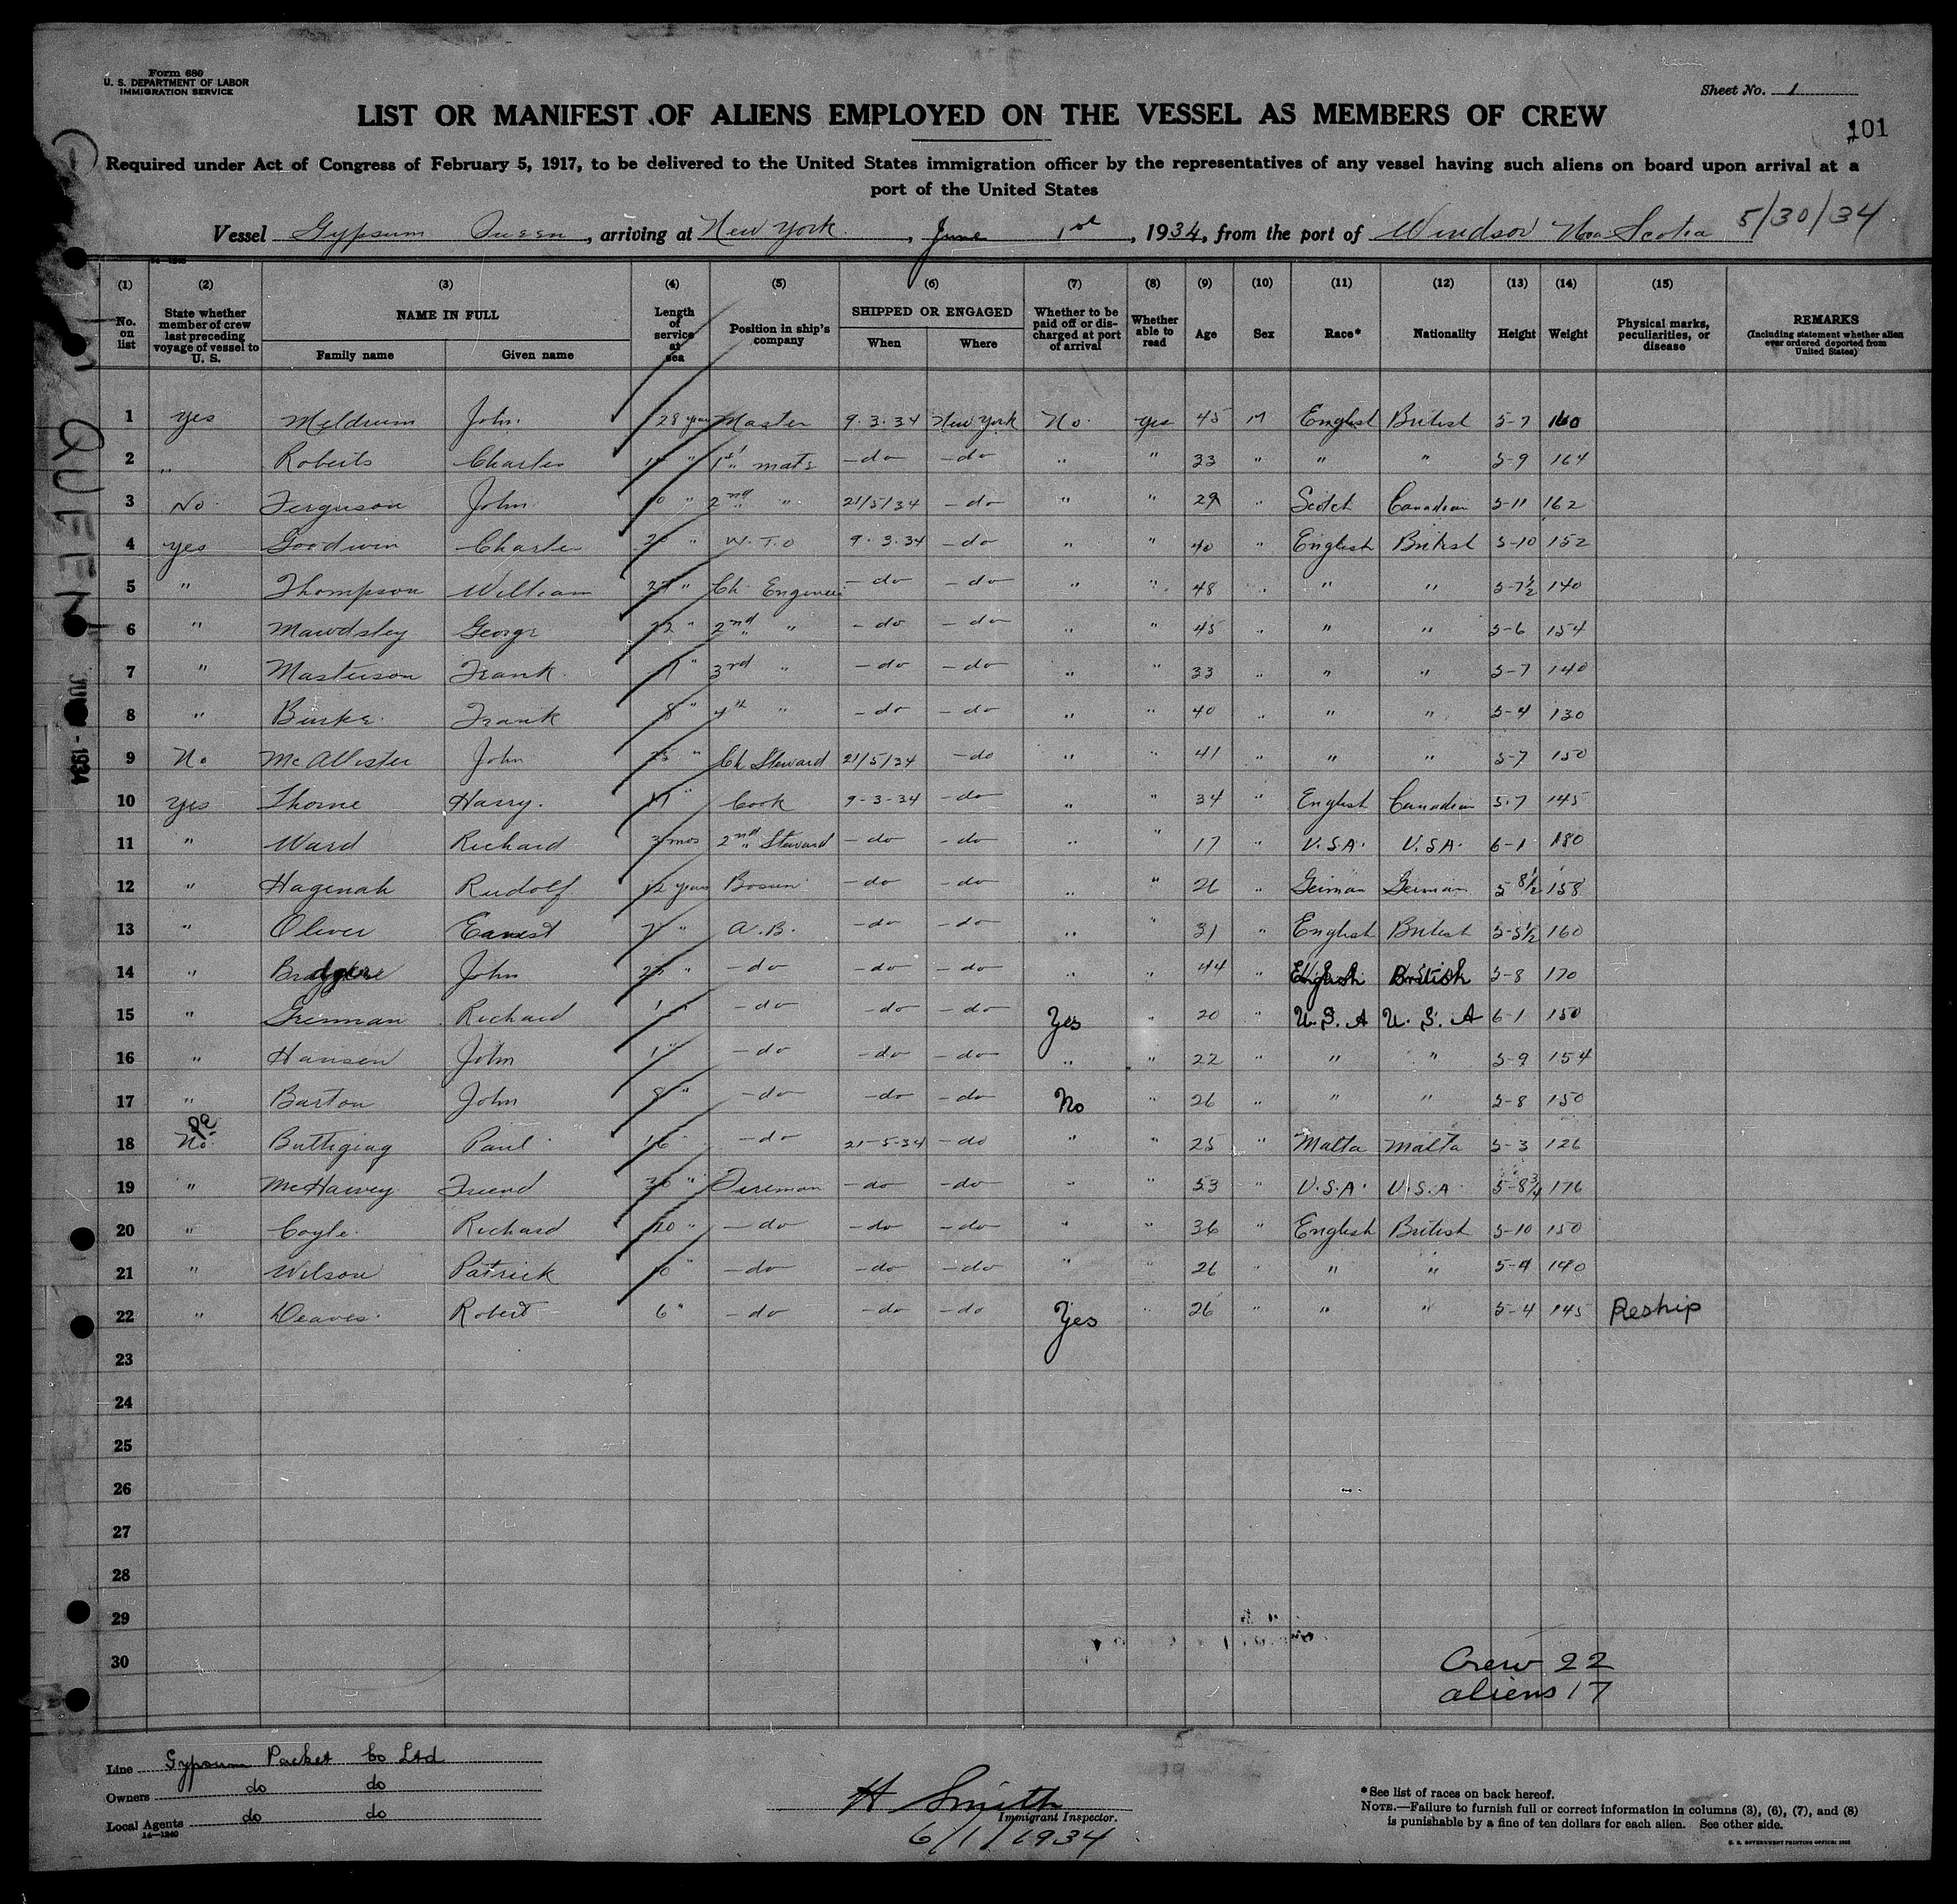 Form 680
U. S. DEPARTMENT OF LABOR
IMMIGRATION SERVICE
Sheet No. 1
LIST OR MANIFEST OF ALIENS EMPLOYED ON THE VESSEL AS MEMBERS OF CREW
101
Required under Act of Congress of February 5, 1917, to be delivered to the United States immigration officer by the representatives of any vessel having such aliens on board upon arrival at a
port of the United States
Vessel Gypsum Queen, arriving at New York, June 1st, 1934, from the port of Windsor Nova Scotia 5/30/34
(1) (2) (3) (4) (5) (6) (7) (8) (9) (10) (11) (12) (13) (14) (15)
No. on list | State whether member of crew last preceding voyage of vessel to U. S. | NAME IN FULL | Family name | Given name | Length of service at sea | Position in ship's company | SHIPPED OR ENGAGED | When | Where | Whether to be paid off or discharged at port of arrival | Whether able to read | Age | Sex | Race* | Nationality | Height | Weight | Physical marks, peculiarities, or disease | REMARKS (Including statement whether alien ever ordered deported from United States)
1 yes Meldrum John 28 years Master 9.3.34 New York No. yes 45 M English British 5-7 160
2 " Roberts Charles " 1st mate -do- -do- " " 33 " " " 5-9 164
3 No Ferguson John 10 " 2nd " 21/5/34 -do- " " 29 " Scotch Canadian 5-11 162
4 yes Goodwin Charles " W.T.O 9.3.34 -do- " " 40 " English British 5-10 152
5 " Thompson William " Ch. Engineer -do- -do- " " 48 " " " 5-7½ 140
6 " Mawdsley George 22 " 2nd " -do- -do- " " 45 " " " 5-6 154
7 " Masterson Frank " 3rd " -do- -do- " " 33 " " " 5-7 140
8 " Burke Frank 8 " 4th " -do- -do- " " 40 " " " 5-4 130
9 No McAllister John 25 " Ch Steward 21/5/34 -do " " 41 " " " 5-7 150
10 yes Thorne Harry. " Cook 9-3-34 -do- " " 34 " English Canadian 5.7 145
11 " Ward Richard 3 mos 2nd Steward -do- -do- " " 17 " U.S.A. U.S.A. 6-1 180
12 " Hagenah Rudolf 12 years Bosun -do- -do- " " 26 " German German 5 8½ 158
13 " Oliver Earnest 7 " A.B. -do- -do- " " 31 " English British 5-5½ 160
14 " John " -do- -do- -do- " " 44 " English British 5-8 170
15 " Richard 1 " -do- -do- -do- Yes " 20 " U.S.A U.S.A 6-1 150
16 " Hansen John 1 " -do- -do- -do- " " 22 " " " 5-9 154
17 " Barton John 8 " -do- -do- -do- No " 26 " " " 5-8 150
18 No. Buttigieg Paul 16 -do- 21-5-34 -do " " 25 " Malta Malta 5-3 126
19 " McHarvey Friend " Fireman -do- -do- " " 53 " U.S.A. U.S.A 5-8¾ 176
20 " Coyle Richard 20 " -do- -do- -do- " " 36 " English British 5-10 150
21 " Wilson Patrick 10 " -do- -do- -do- " " 26 " " " 5-4 140
22 " Deaves Robert 6 " -do- -do- -do Yes " 26 " " " 5-4 145 Reship
23
24
25
26
27
28
29
30
Crew 22
aliens 17
Line Gypsum Packet Co Ltd
Owners do do
Local Agents do do
14—1240
H Smith
Immigrant Inspector.
6/1/1934
*See list of races on back hereof.
NOTE.—Failure to furnish full or correct information in columns (3), (6), (7), and (8)
is punishable by a fine of ten dollars for each alien. See other side.
QUEEN
1934